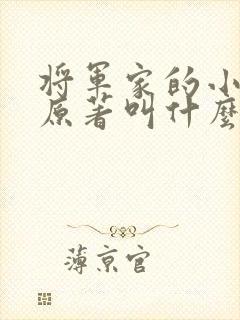 将军家的小
原著叫什麼
薄京官